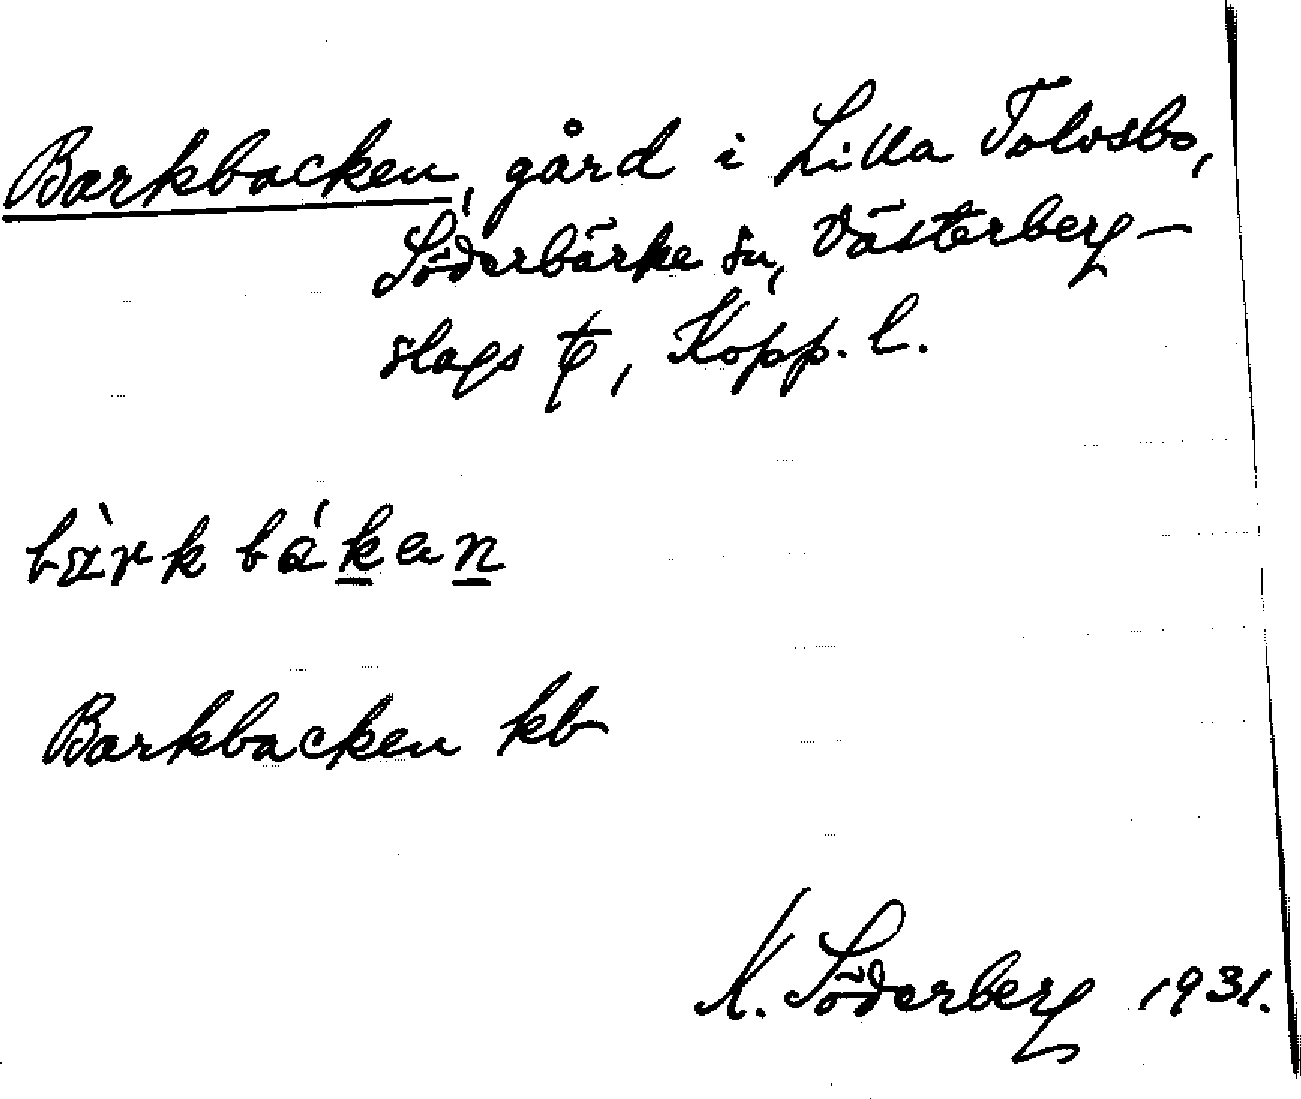 Barkbacken, gård i Lilla Tolvsbo,
Söderbärke sn, Västerberg-
slags tg, Kopp. l.
bàrkbákan
Barkbacken kb
K. Söderberg 1931.